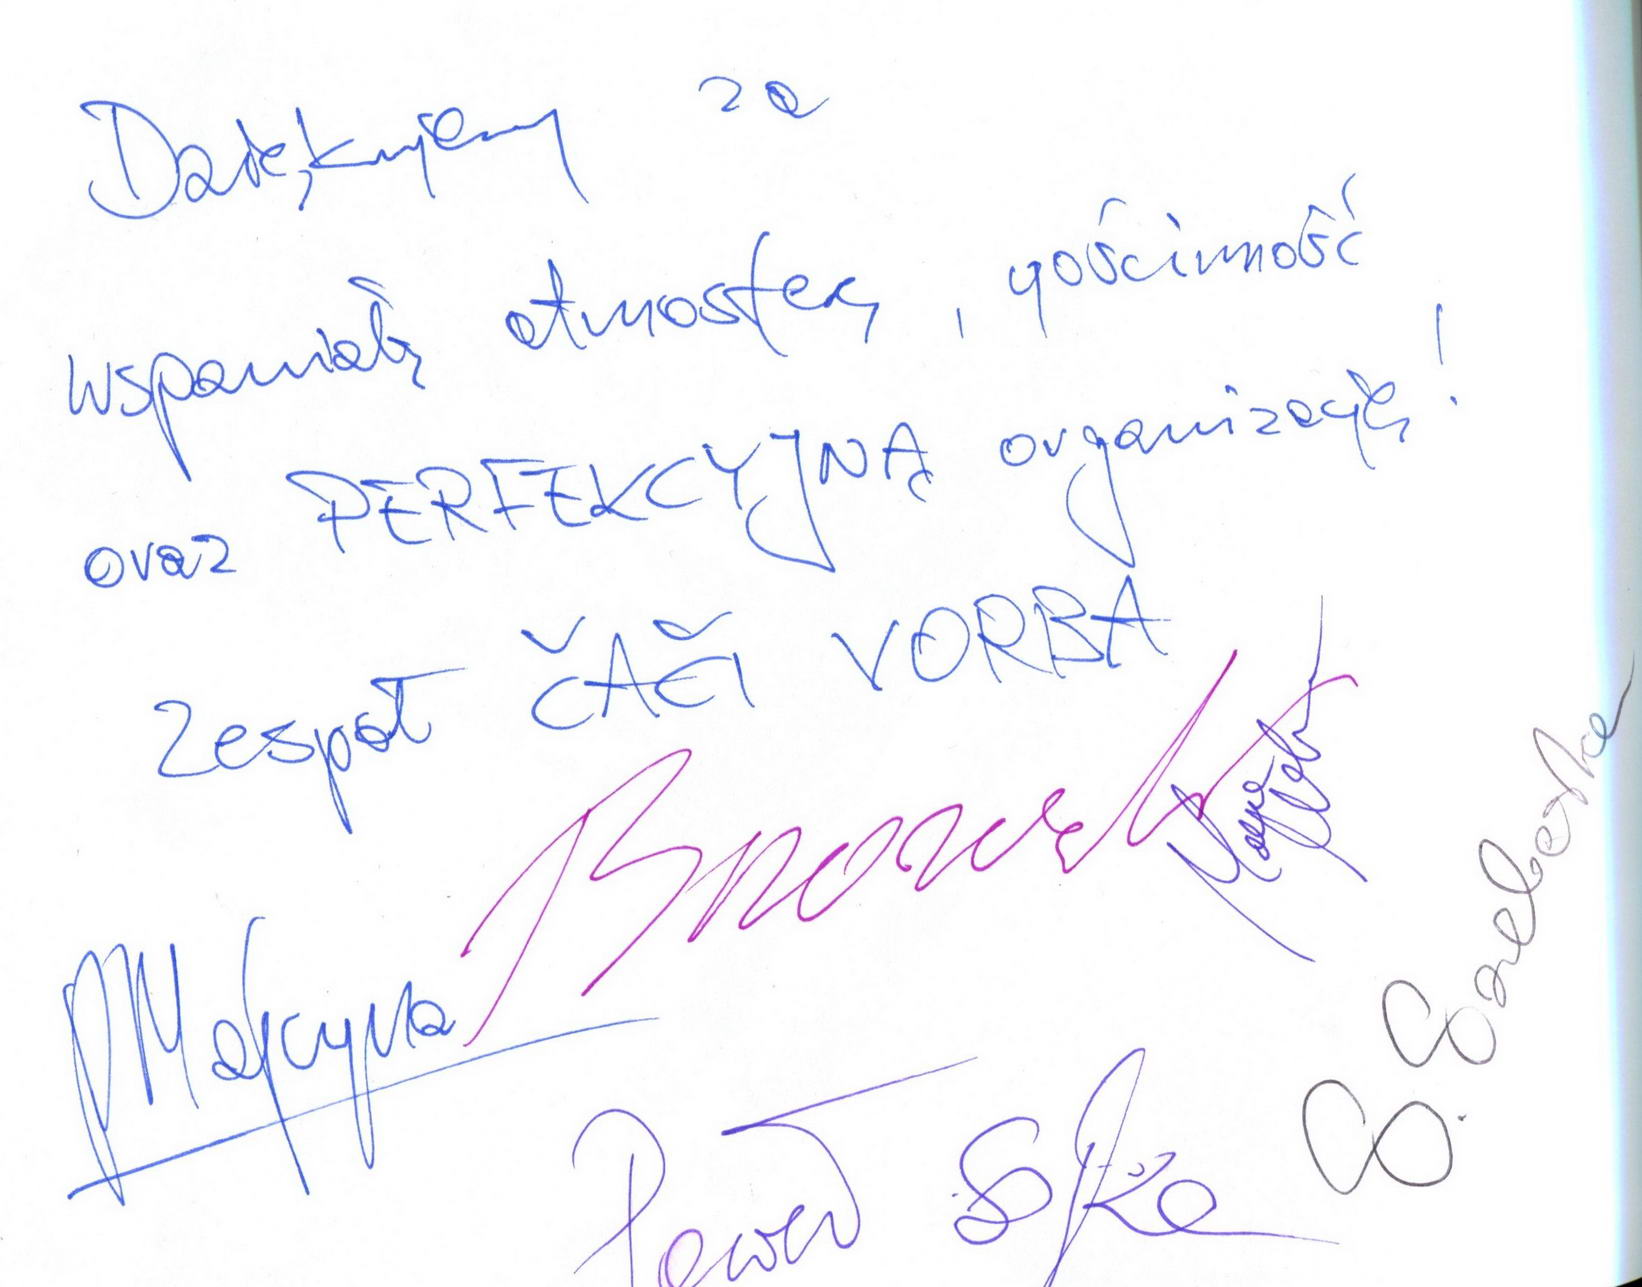 Dziękujemy za
wspaniałą atmosferę, gościnność
oraz PERFEKCYJNĄ organizację!
Zespół ČAČI VORBA
Paweł Sójka